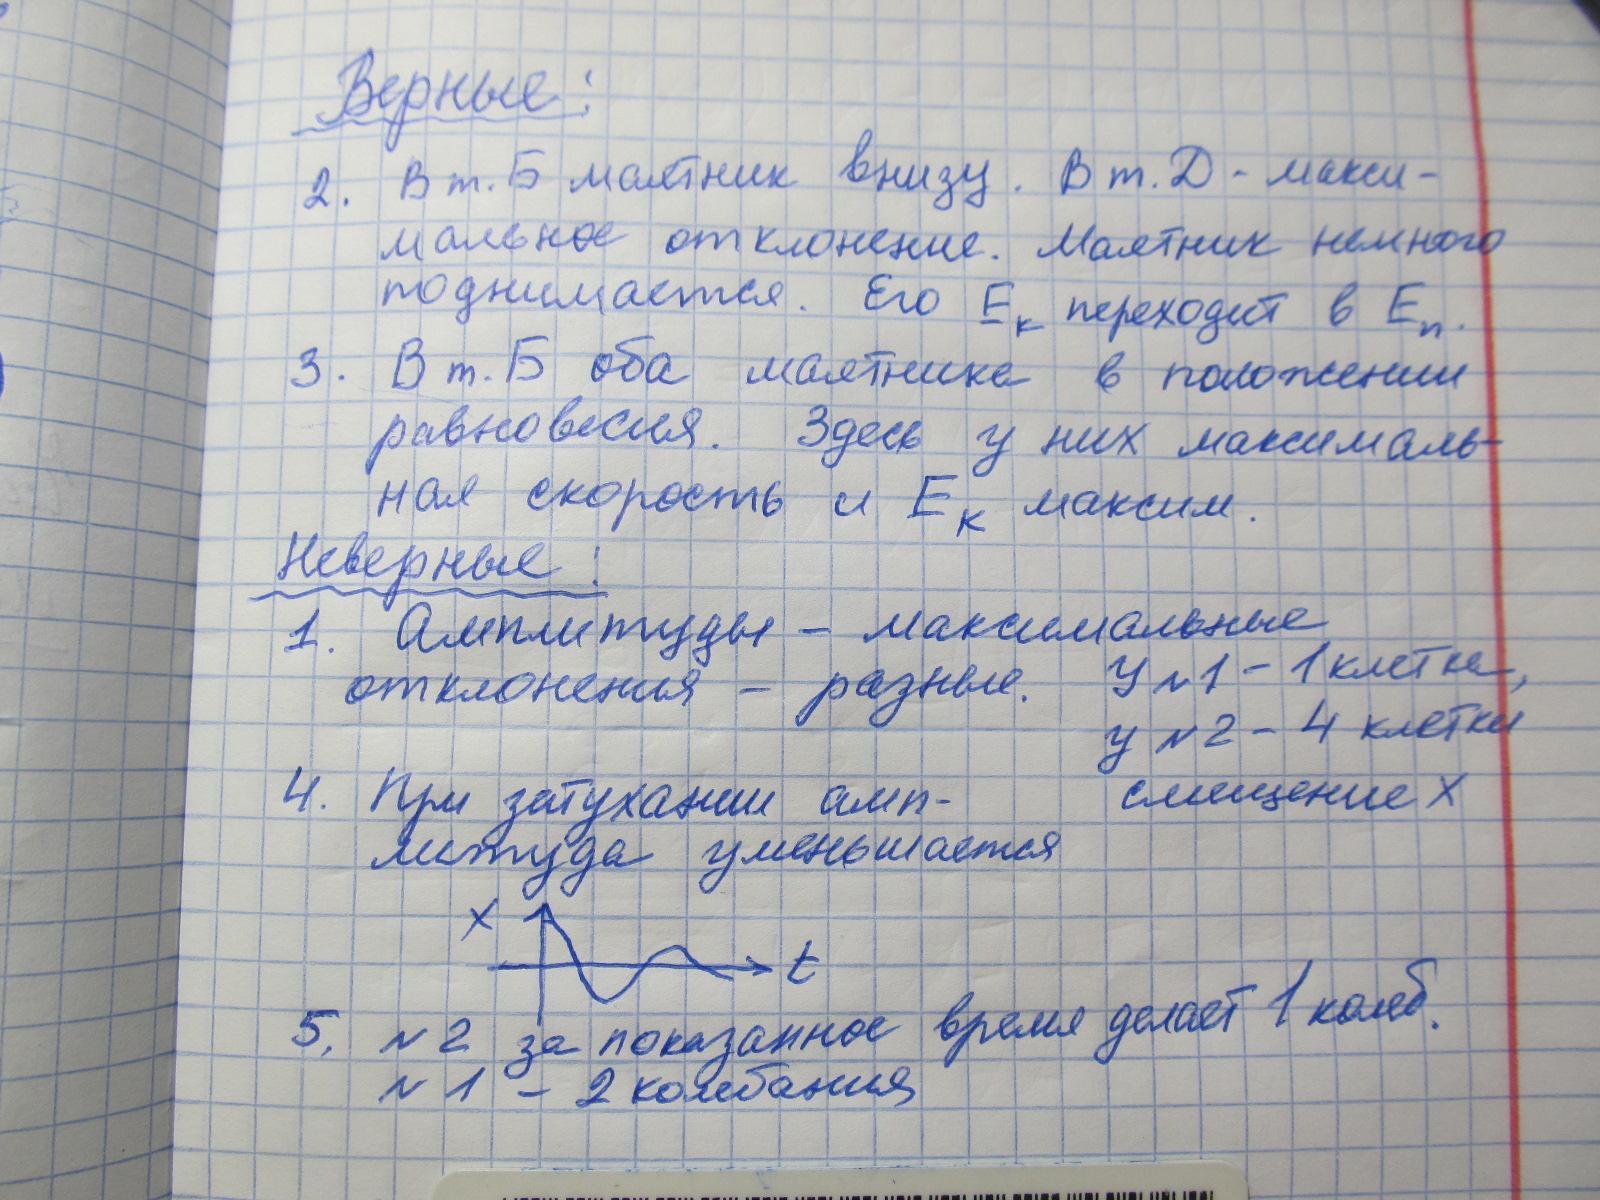 Верные:
2. В т. Б маятник внизу. В т. Д - макси-
мальное отклонение. Маятник немного
поднимается. Его Eк переходит в Eп.
3. В т. Б оба маятника в положении
равновесия. Здесь у них максималь-
ная скорость и Eк максим.
Неверные:
1. Амплитуды – максимальные
отклонения – разные. У №1 – 1 клетка,
у №2 – 4 клетки
смещение X
4. При затухании амп-
литуда уменьшается
X
t
5. №2 за показанное время делает 1 колеб.
№1 – 2 колебания